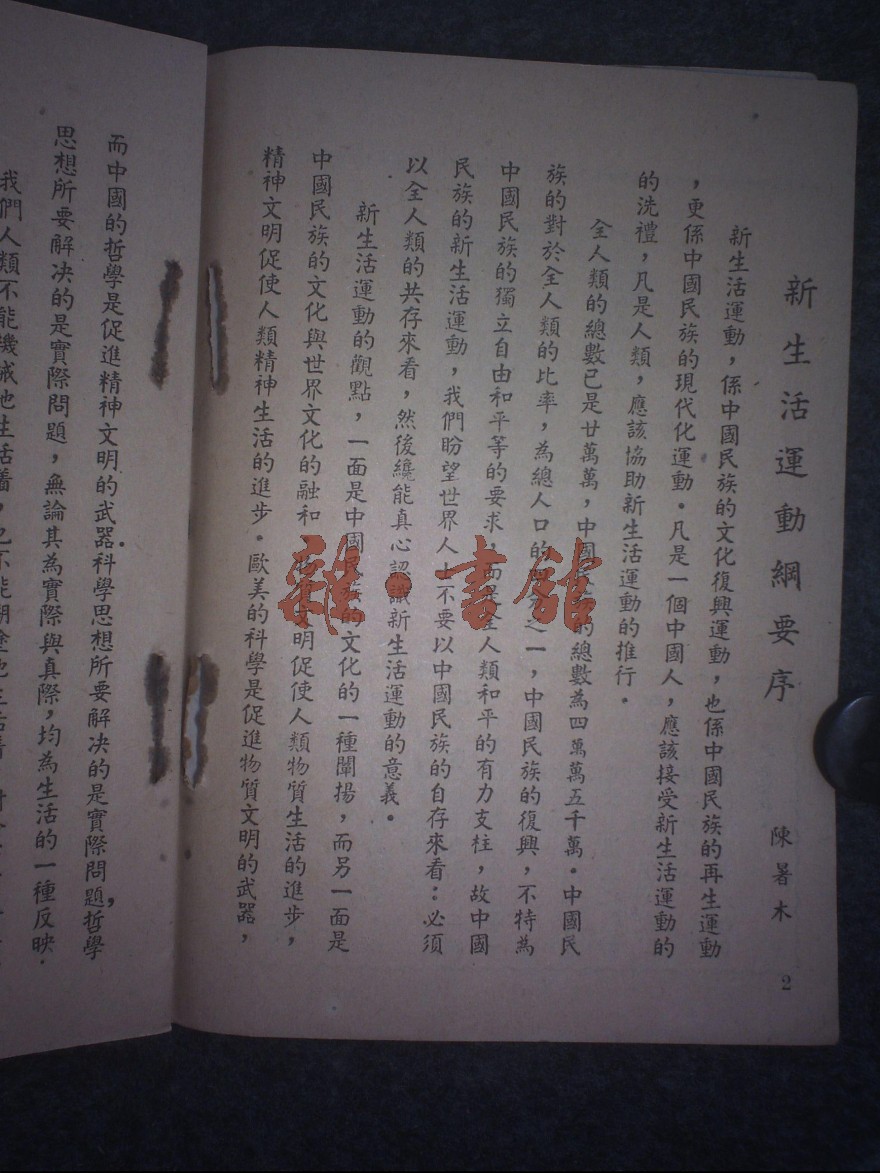 新生活運動綱要序
陳暑木
新生活運動，係中國民族的文化復興運動，也係中國民族的再生運動
，更係中國民族的現代化運動．凡是一個中國人，應該接受新生活運動的
的洗禮，凡是人類，應該協助新生活運動的推行．
全人類的總數已是廿萬萬，中國民族的總數為四萬萬五千萬．中國民
族的對於全人類的比率，為總人口的之一，中國民族的復興，不特為
中國民族的獨立自由和平等的要求，而是全人類和平的有力支柱，故中國
民族的新生活運動，我們盼望世界人士不要以中國民族的自存來看：必須
以全人類的共存來看，然後纔能真心認識新生活運動的意義．
新生活運動的觀點，一面是中國民族的文化的一種闡揚，而另一面是
中國民族的文化與世界文化的融和 物質文明促使人類物質生活的進步，
精神文明促使人類精神生活的進步．歐美的科學是促進物質文明的武器，
2
而中國的哲學是促進精神文明的武器．科學思想所要解决的是實際問題，哲學
思想所要解决的是實際問題，無論其為實際與真際，均為生活的一種反映．
我們人類不能機械地生活着，也不能糊塗地生活着
雜·書館